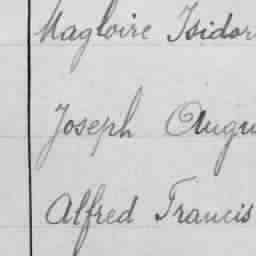 Magloire Isidor
Joseph Augu
Alfred Francis